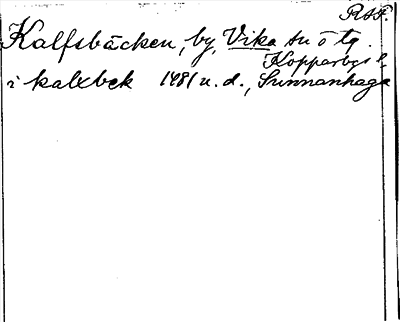 RAF.
Kalfsbäcken, by, Vika sn o tg.
Kopparbgs l.
i kalxbek 1481 u. d., Sunnanhaga